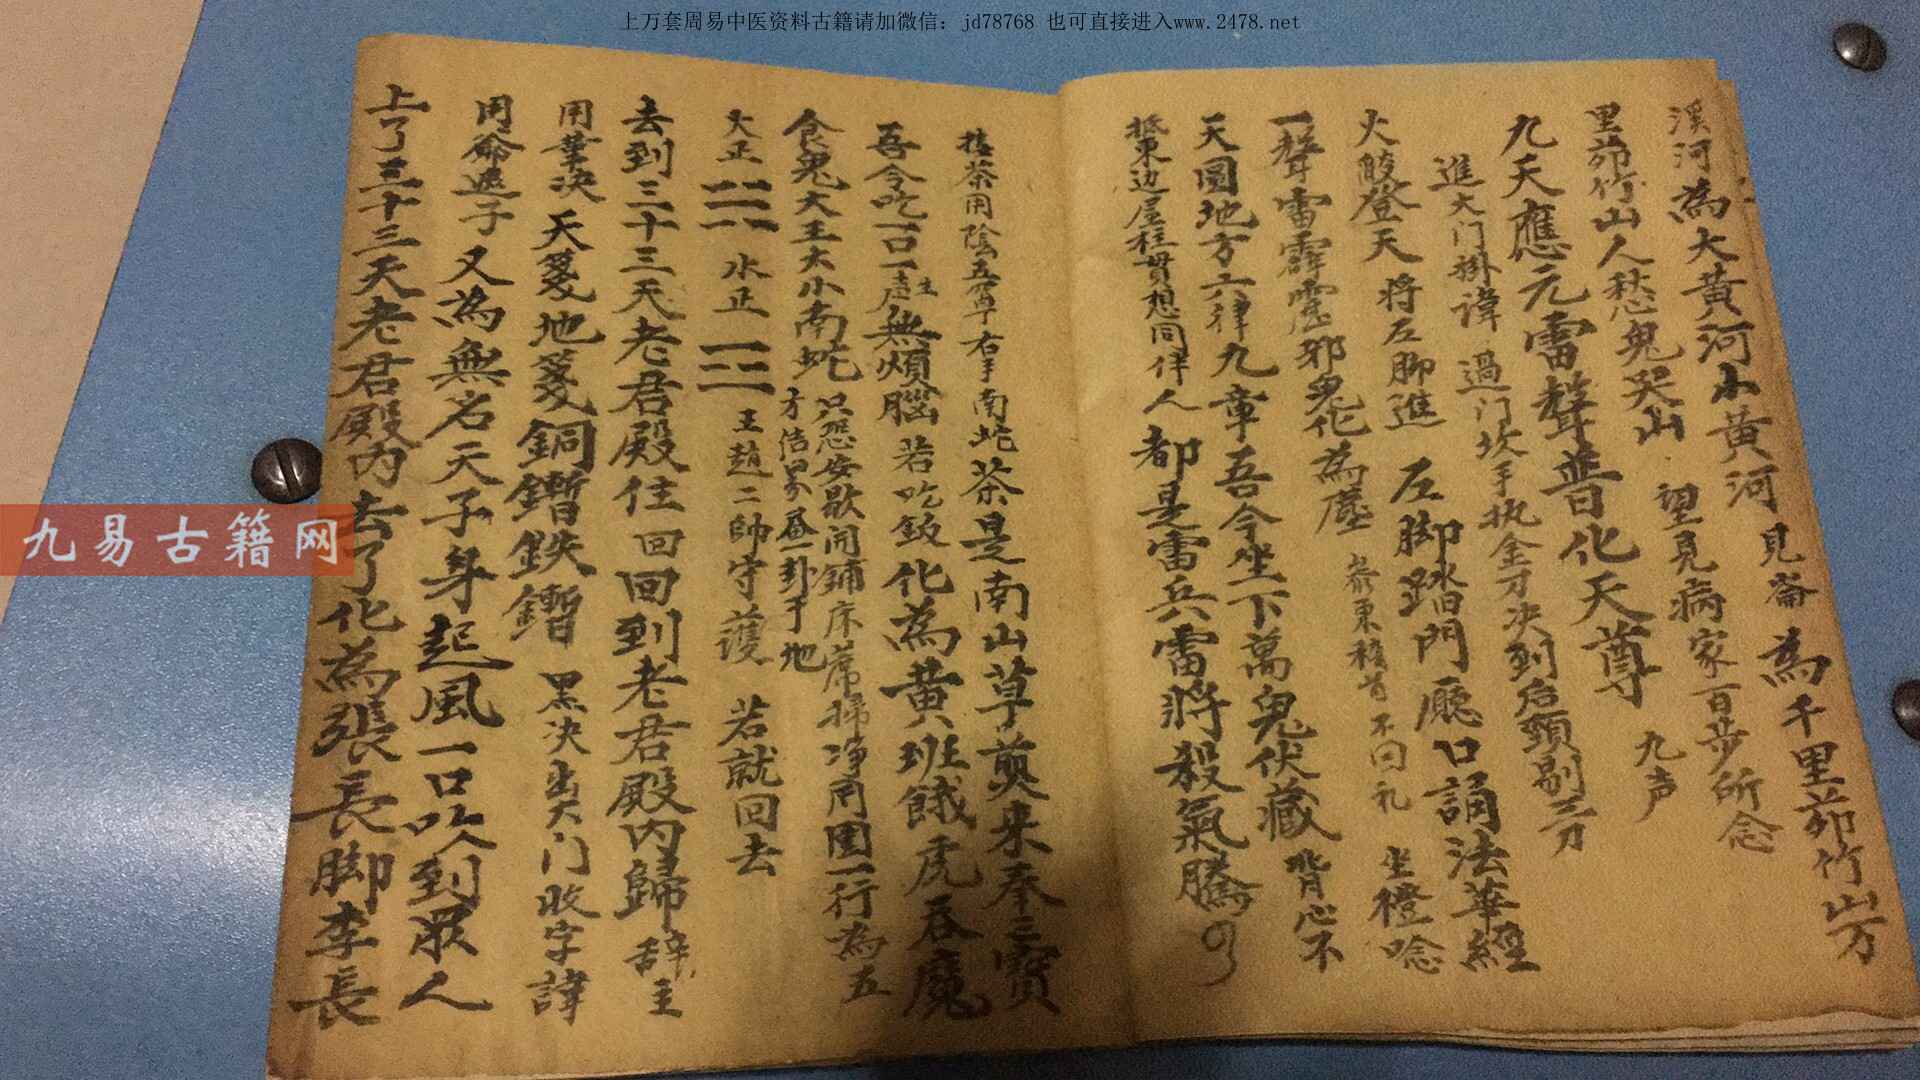 上万套周易中医资料古籍请加微信：jd78768 也可直接进入www.2478.net
溪河為大黄河小黄河見崙為千里茆竹山万
里茆竹山人愁鬼哭山 望見病家百步所念
九天應元雷聲普化天尊 九声
進大门掛諱 過门坎手执金刀决到启頭剔三刀
火酸登天 将左脚進 左脚踏門廳口誦法華經
一聲雷霹靂邪鬼化為塵 東 不回礼 坐橙唸
天圓地方六律九章吾今坐下萬鬼伏藏 背心不
抵東边屋柱貫想同伴人都是雷兵雷將殺氣騰
接茶用陰五尊右手南蛇 茶是南山草煎来奉三寳
吾今吃一口一 生無煩腦 若吃飯化為黄班餓虎吞魔
食鬼大王大小南蛇 只怨安歇開鋪床蓆掃净用圈一行為五
方 一卦于地
大正 水正 王趙二帥守護 若就回去
去到三十三天老君殿住回回到老君殿内歸 辞主
用筆决 天箋地箋銅鐕鉄鐕 黑决出大门收字諱
用爺遮子 又為無名天子身起風一口吹到眾人
上了三十三天老君殿内去了化為張長脚李長
九易古籍网